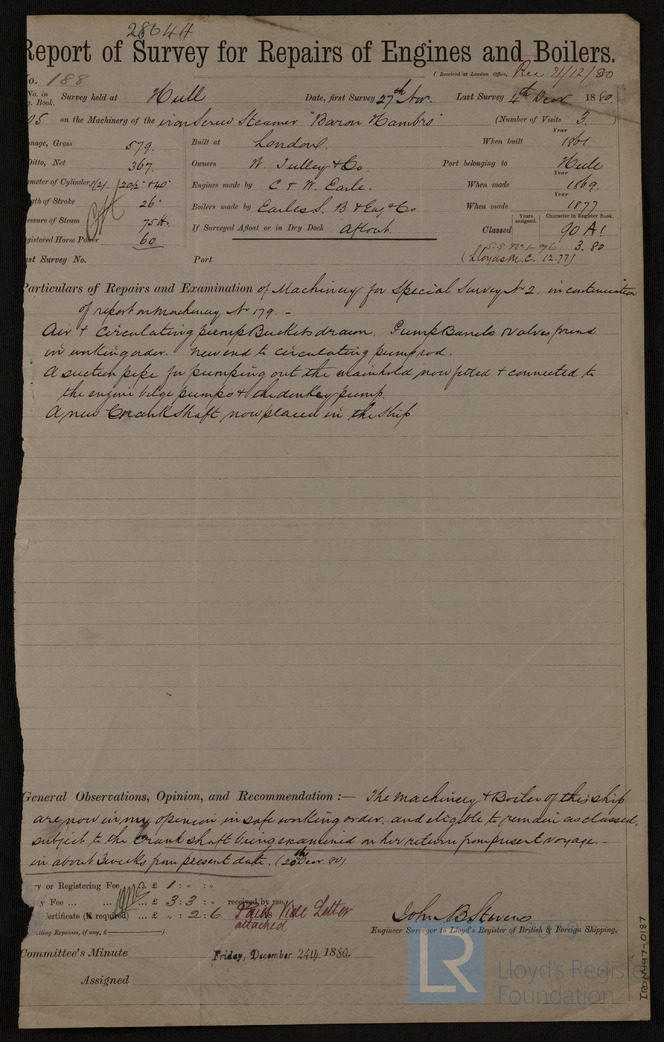 28644
Report of Survey for Repairs of Engines and Boilers.
No. 188 (Received at London Office, Rec 21/12/80
No. in Book. Survey held at Hull Date, first Survey 27th Nov. Last Survey 4th Decr 1880
05 on the Machinery of the iron Screw Steamer "Baron Hambro" (Number of Visits 3.)
Tonnage, Gross 579. Built at London. When built 1861
Ditto, Net 367. Owners W. Tulley & Co. Port belonging to Hull
Diameter of Cylinders 20½" & 40" Engines made by C & W. Earle. When made 1869.
Length of Stroke 26" Boilers made by Earles S. B & Eng & Co When made 1877
Pressure of Steam 75 lb. If Surveyed Afloat or in Dry Dock Afloat Classed Years assigned. Character in Register Book. 90 A1
Registered Horse Power 60 3.80
Last Survey No. Port (Lloyds M.C. 12.77)
Particulars of Repairs and Examination of Machinery for Special Survey No 2. in continuation
of report on Machinery No 179. -
Air & Circulating pump Buckets drawn. Pump Barrels & valves found
in working order. New end to circulating pump rod.
A suction pipe for pumping out the mainhold now fitted & connected to
the engine bilge pumps & the donkey pump.
A new Crank Shaft now placed in the ship
General Observations, Opinion, and Recommendation :— The Machinery & Boiler of this ship
are now in my opinion in safe working order. and eligible to remain as classed,
subject to the crank shaft being examined on her return from present voyage. -
in about 3 weeks from present date. (20th Decr 80)
Entry or Registering Fee £ 1 : " : "
Fee £ 3 : 3 : " received by me,
Certificate (if required) £ " : 2 : 6 Paid Vide Letter
attached
John B Stevens
Travelling Expenses, if any, £ Engineer Surveyor to Lloyd's Register of British & Foreign Shipping.
Committee's Minute Friday, December 24th. 1880.
Assigned
LR
Lloyd's Register
Foundation
IRON447-0187